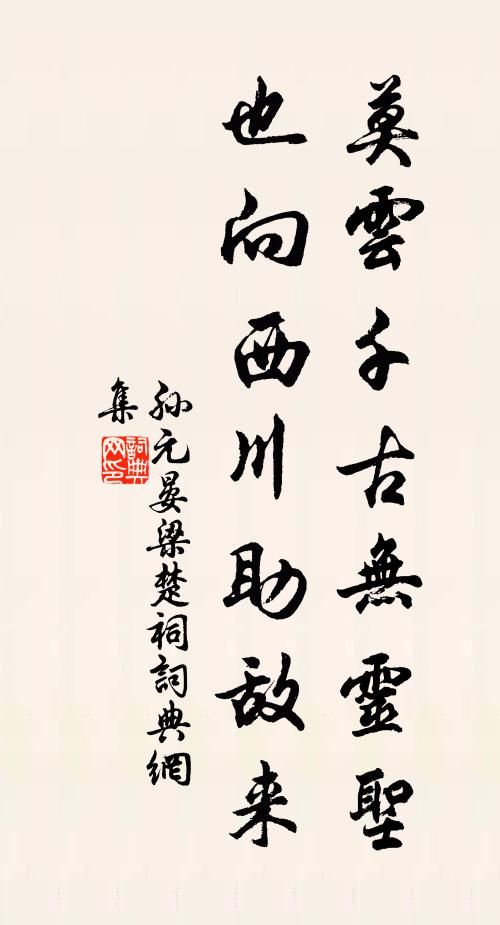 莫雲千古無靈聖
也向西川助敌来
孙元晏梁楚祠詞典網
集
詞典
网印